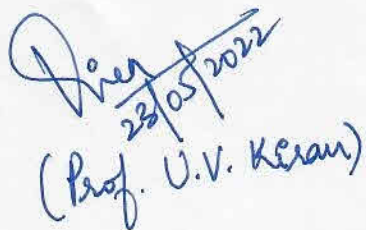 23/05/2022
(Prof. U.V. Kiran)